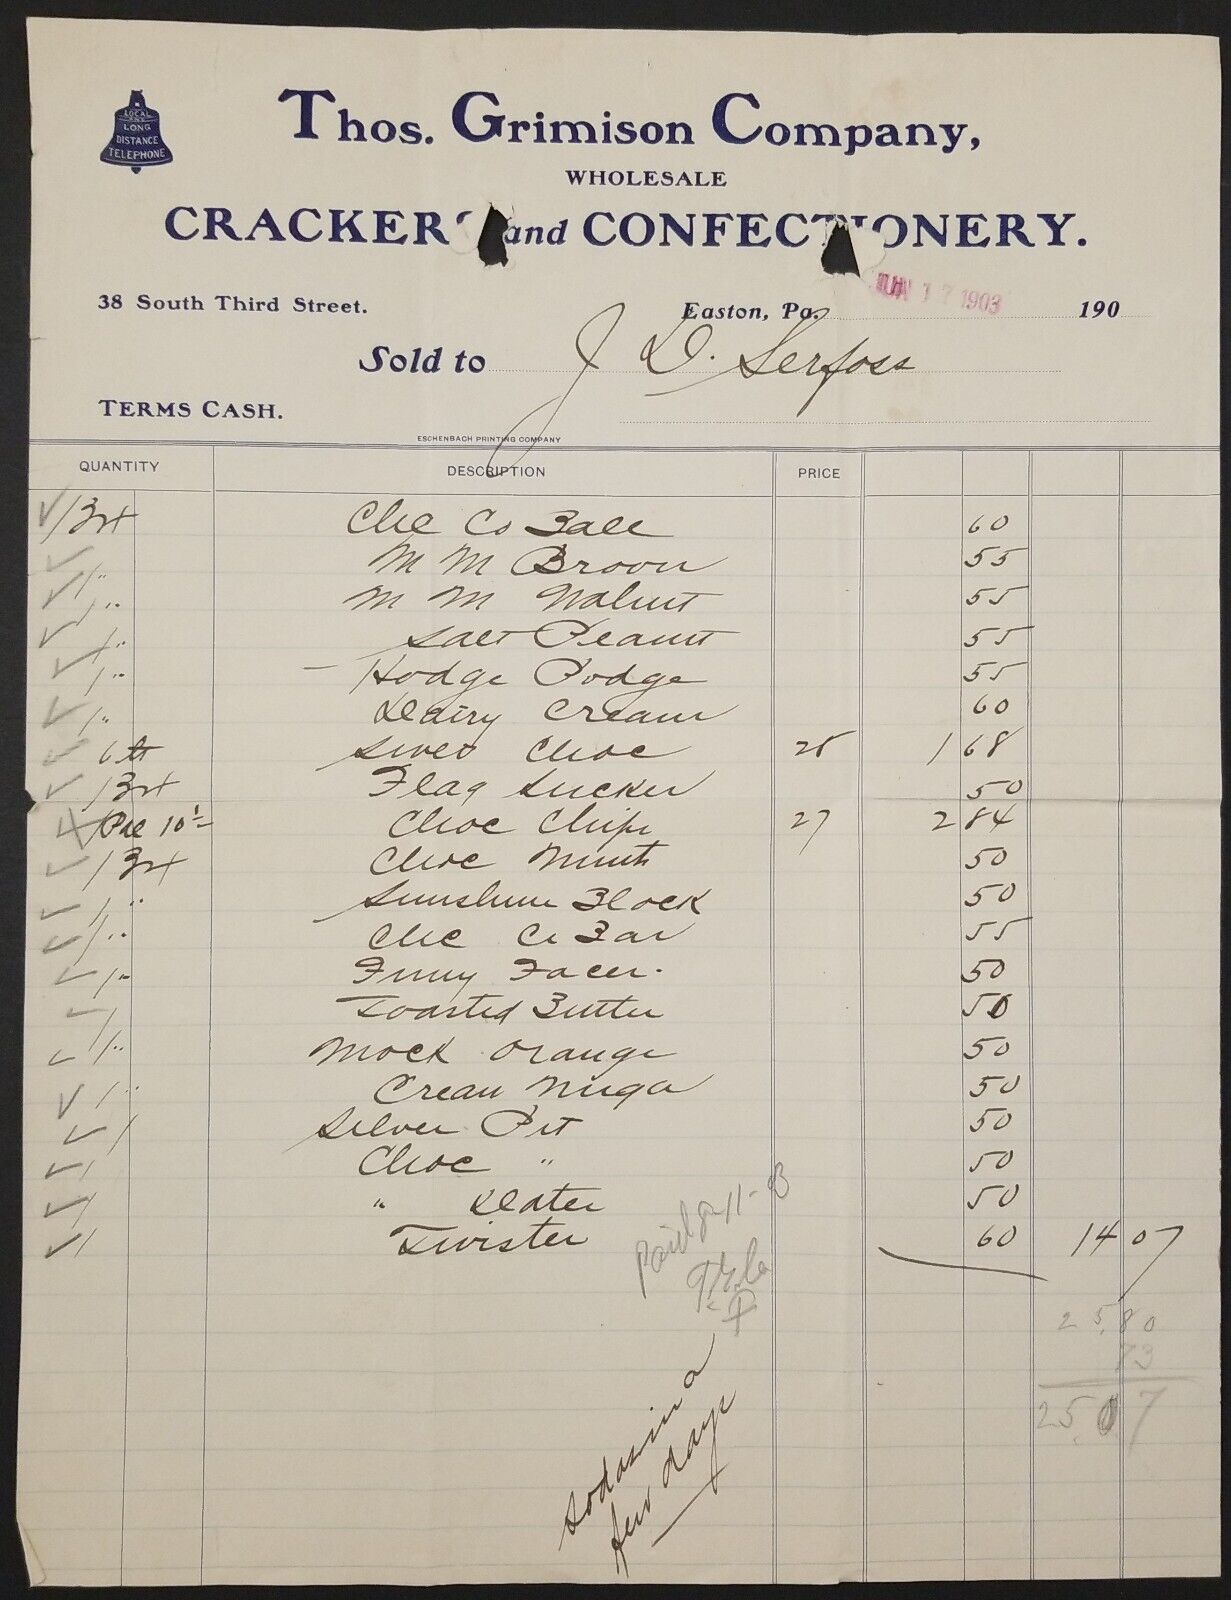 LOCAL AND LONG DISTANCE TELEPHONE
Thos. Grimison Company,
WHOLESALE
CRACKERS and CONFECTIONERY.
38 South Third Street. Easton, Pa. JUN 17 1903 190
Sold to J D. Serfoss
TERMS CASH.
ESCHENBACH PRINTING COMPANY
QUANTITY DESCRIPTION PRICE
1 Bx Co Ball 60
M M Brown 55
1 " M M Walnut 55
1 " Salt Peanut 55
1 " Hodge Podge 55
1 " Dairy Cream 60
6 lb Choc 28 1 68
1 Bx Flag Sucker 50
Pal 10 1/2 Choc Chips 27 2 84
1 Bx Choc Mint 50
1 " Sunshine Block 50
1 " Bar 55
1 " Funy Faces. 50
1 Toasted Butter 50
1 " Mock Orange 50
1 " Cream Nuga 50
1 Silver Pit 50
1 Choc " 50
1 " Dater 50
1 Twister 60 14 07
Paid 8-11-03
25.80
73
25.07
Sodas in a
few days